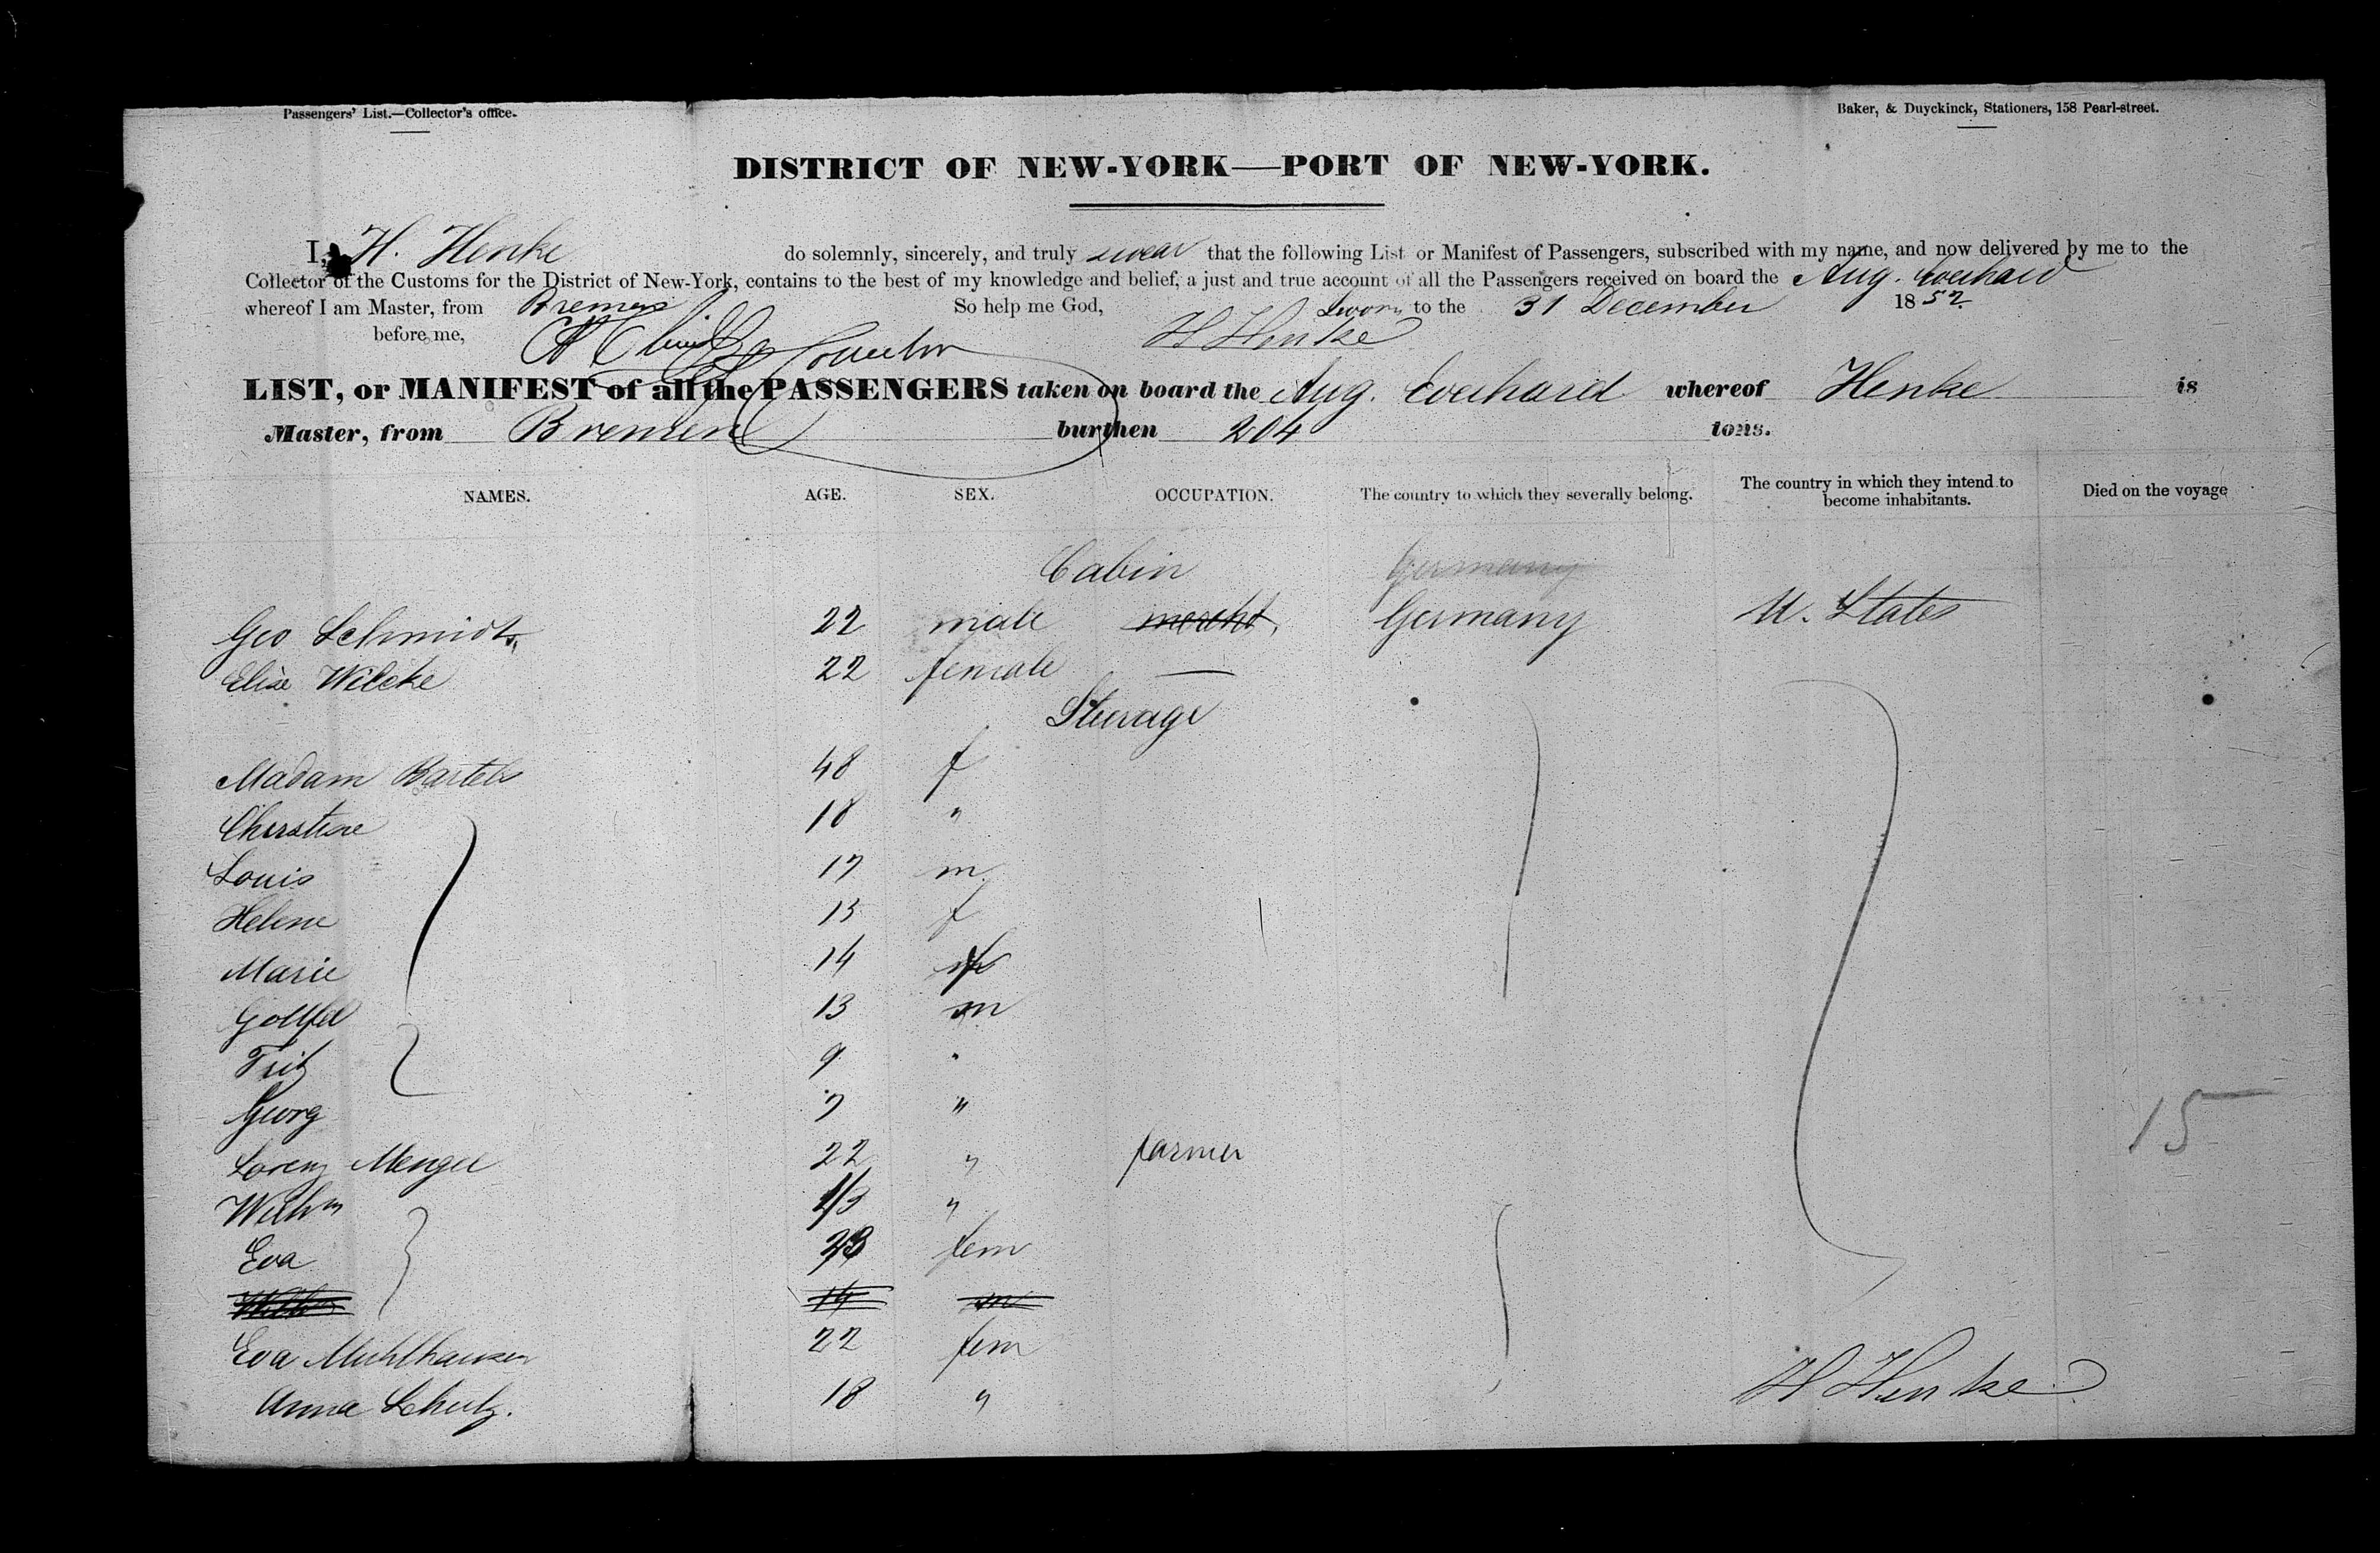 Passengers' List.—Collector's office.
Baker, & Duyckinck, Stationers, 158 Pearl-street.
DISTRICT OF NEW-YORK—PORT OF NEW-YORK.
I, H. Henke do solemnly, sincerely, and truly swear that the following List or Manifest of Passengers, subscribed with my name, and now delivered by me to the
Collector of the Customs for the District of New-York, contains to the best of my knowledge and belief, a just and true account of all the Passengers received on board the Aug. Everhard
whereof I am Master, from Bremen So help me God, Sworn to the 31 December 1852
before me, H Henke
LIST, or MANIFEST of all the PASSENGERS taken on board the Aug. Everhard whereof Henke is
Master, from Bremen burthen 204 tons.
NAMES. AGE. SEX. OCCUPATION. The country to which they severally belong. The country in which they intend to become inhabitants. Died on the voyage
Cabin Germany
Geo Schmidt 22 male mercht, Germany U. States
Elise Wilcke 22 female —
Steerage
Madam Bartels 48 f
Christine 18 "
Louis 17 m
Helene 15 f
Marie 14 f
Gottfd 13 m
Fritz 9 "
Georg 7 "
Lorenz Mengel 22 " farmer
Wilhm 1/3 "
Eva 23 fem
Wilhm 14 m
Eva Muhlhauser 22 fem
Anna Schutz. 18 "
15
H Henke